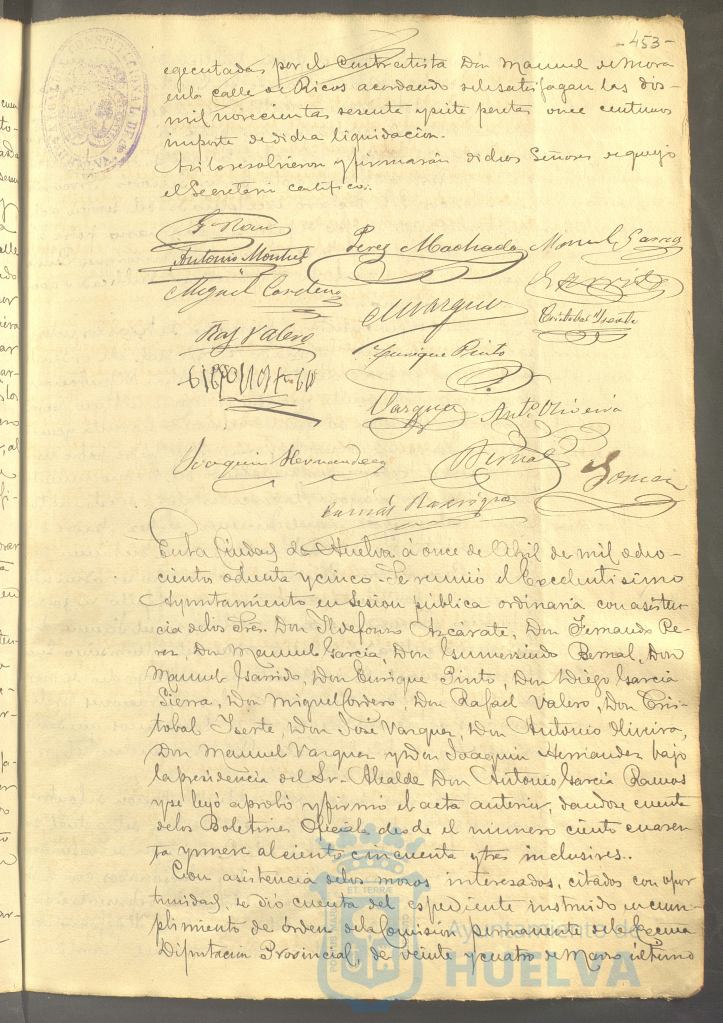 -453-
egecutadas por el Contratista Don Manuel de Mora
en la calle de Ricos acordando se le satisfagan las dos
mil novecientas sesenta y siete pesetas once centimos
importe de dicha liquidacion.
Asi lo resolvieron y firmarán dichos Señores de que yo
el Secretario certifico.
Antonio Montiel Perez Machado Manuel Garcia
Miguel Cordero Garrido
MVazquez Cristobal Yserte
Raf Valero
Enrique Pinto
Vazquez Antº Oliveira
Joaquin Hernandez Bernal
En la Ciudad de Huelva á once de Abril de mil ocho-
cientos ochenta y cinco. Se reunió el Excelentisimo
Ayuntamiento en Sesion publica ordinaria con asisten-
cia de los Sres. Don Ildefonso Azcarate, Don Fernando Pe-
rez, Don Manuel Garcia, Don Gumersindo Bernal, Don
Manuel Garrido, Don Enrique Pinto, Don Diego Garcia
Sierra, Don Miguel Cordero, Don Rafael Valero, Don Cris-
tobal Yserte, Don José Vazquez, Don Antonio Oliveira,
Don Manuel Vazquez y Don Joaquin Hernandez bajo
la presidencia del Sr. Alcalde Don Antonio Garcia Ramos
y se leyó aprobó y firmó el acta anterior, dandose cuenta
de los Boletines Oficiales desde el número ciento cuaren-
ta y nueve al ciento cincuenta y tres inclusives.
Con asistencia de los mozos interesados, citados con opor-
tunidad, se dio cuenta del espediente instruido en cum-
plimiento de órden de la Comision permanente de la Excma
Diputacion Provincial, de veinte y cuatro de Marzo último
Ayuntamiento de
HUELVA